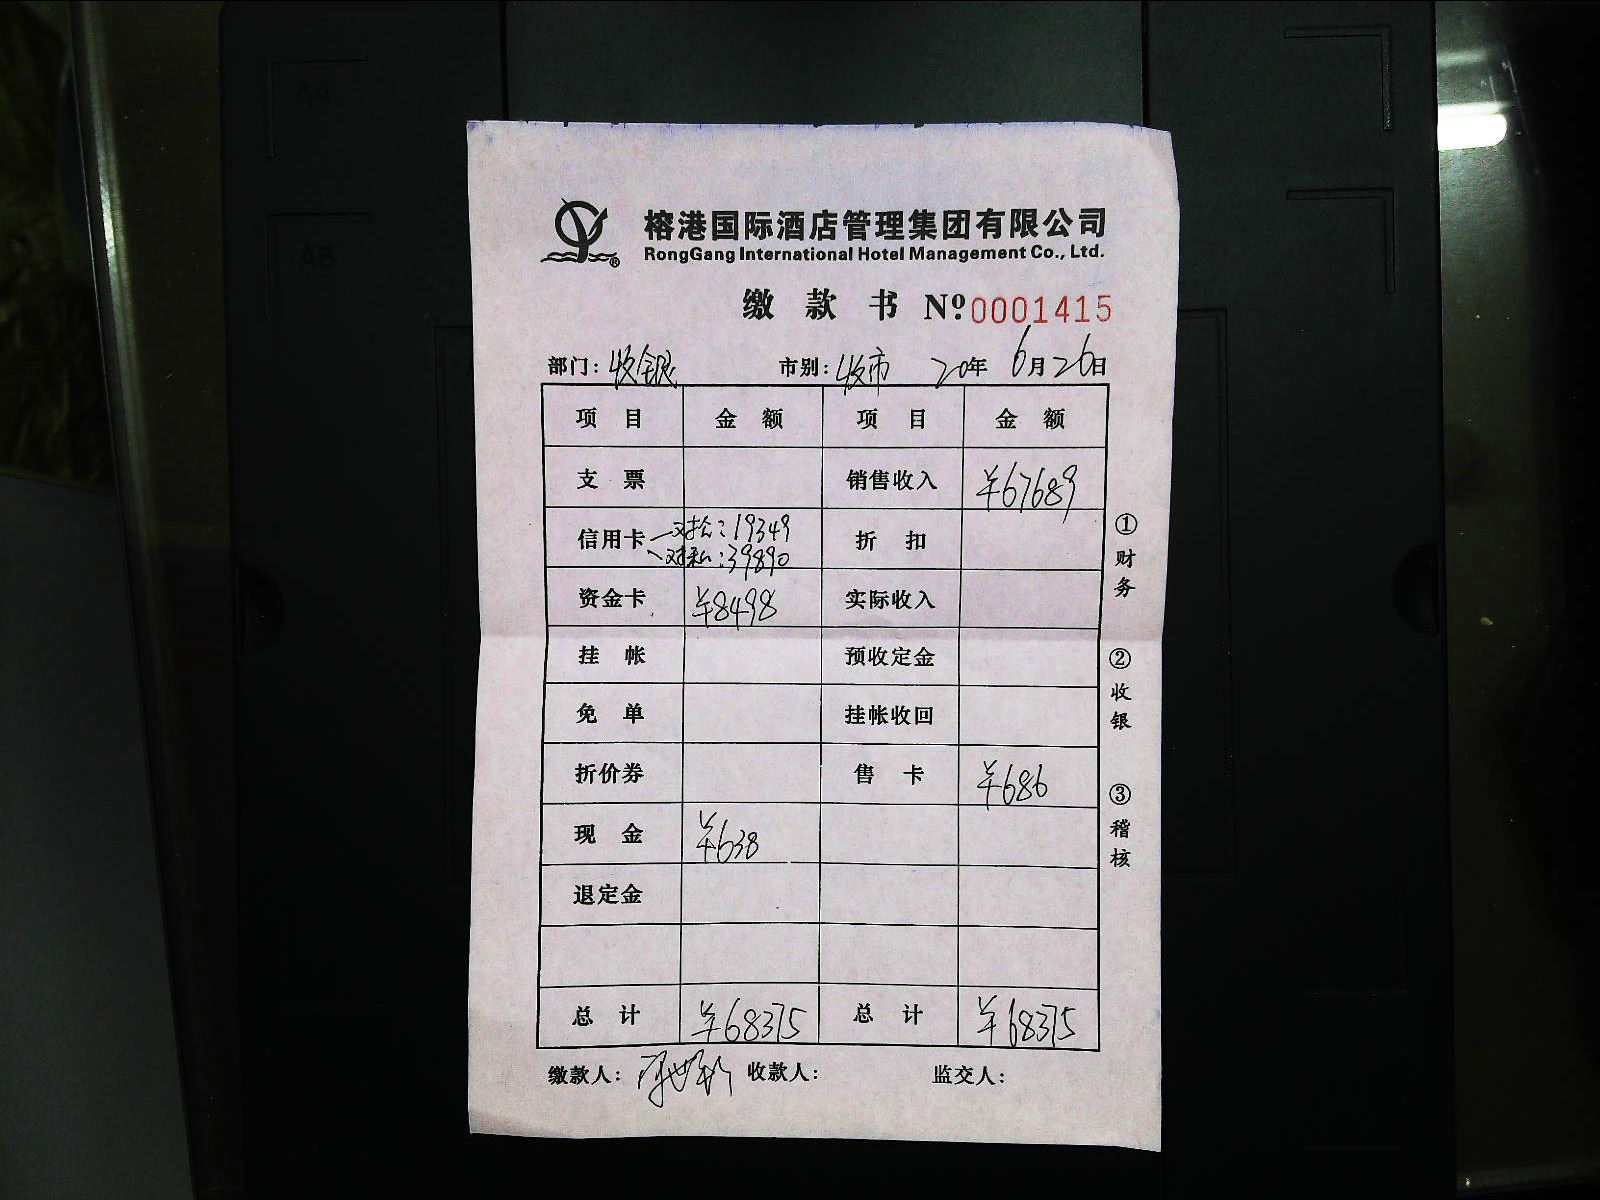 榕港国际酒店管理集团有限公司
RongGang International Hotel Management Co., Ltd.
缴款书 Nº 0001415
部门：收银 市别：收市 20年6月26日
项目 金额 项目 金额
支票 销售收入 ¥67689
信用卡 对公：19349 折扣
对私：39890
资金卡 ¥8498 实际收入
挂帐 预收定金
免单 挂帐收回
折价券 售卡 ¥686
现金 ¥638
退定金
总计 ¥68375 总计 ¥68375
缴款人： 收款人： 监交人：
①财务
②收银
③稽核
A4
A5